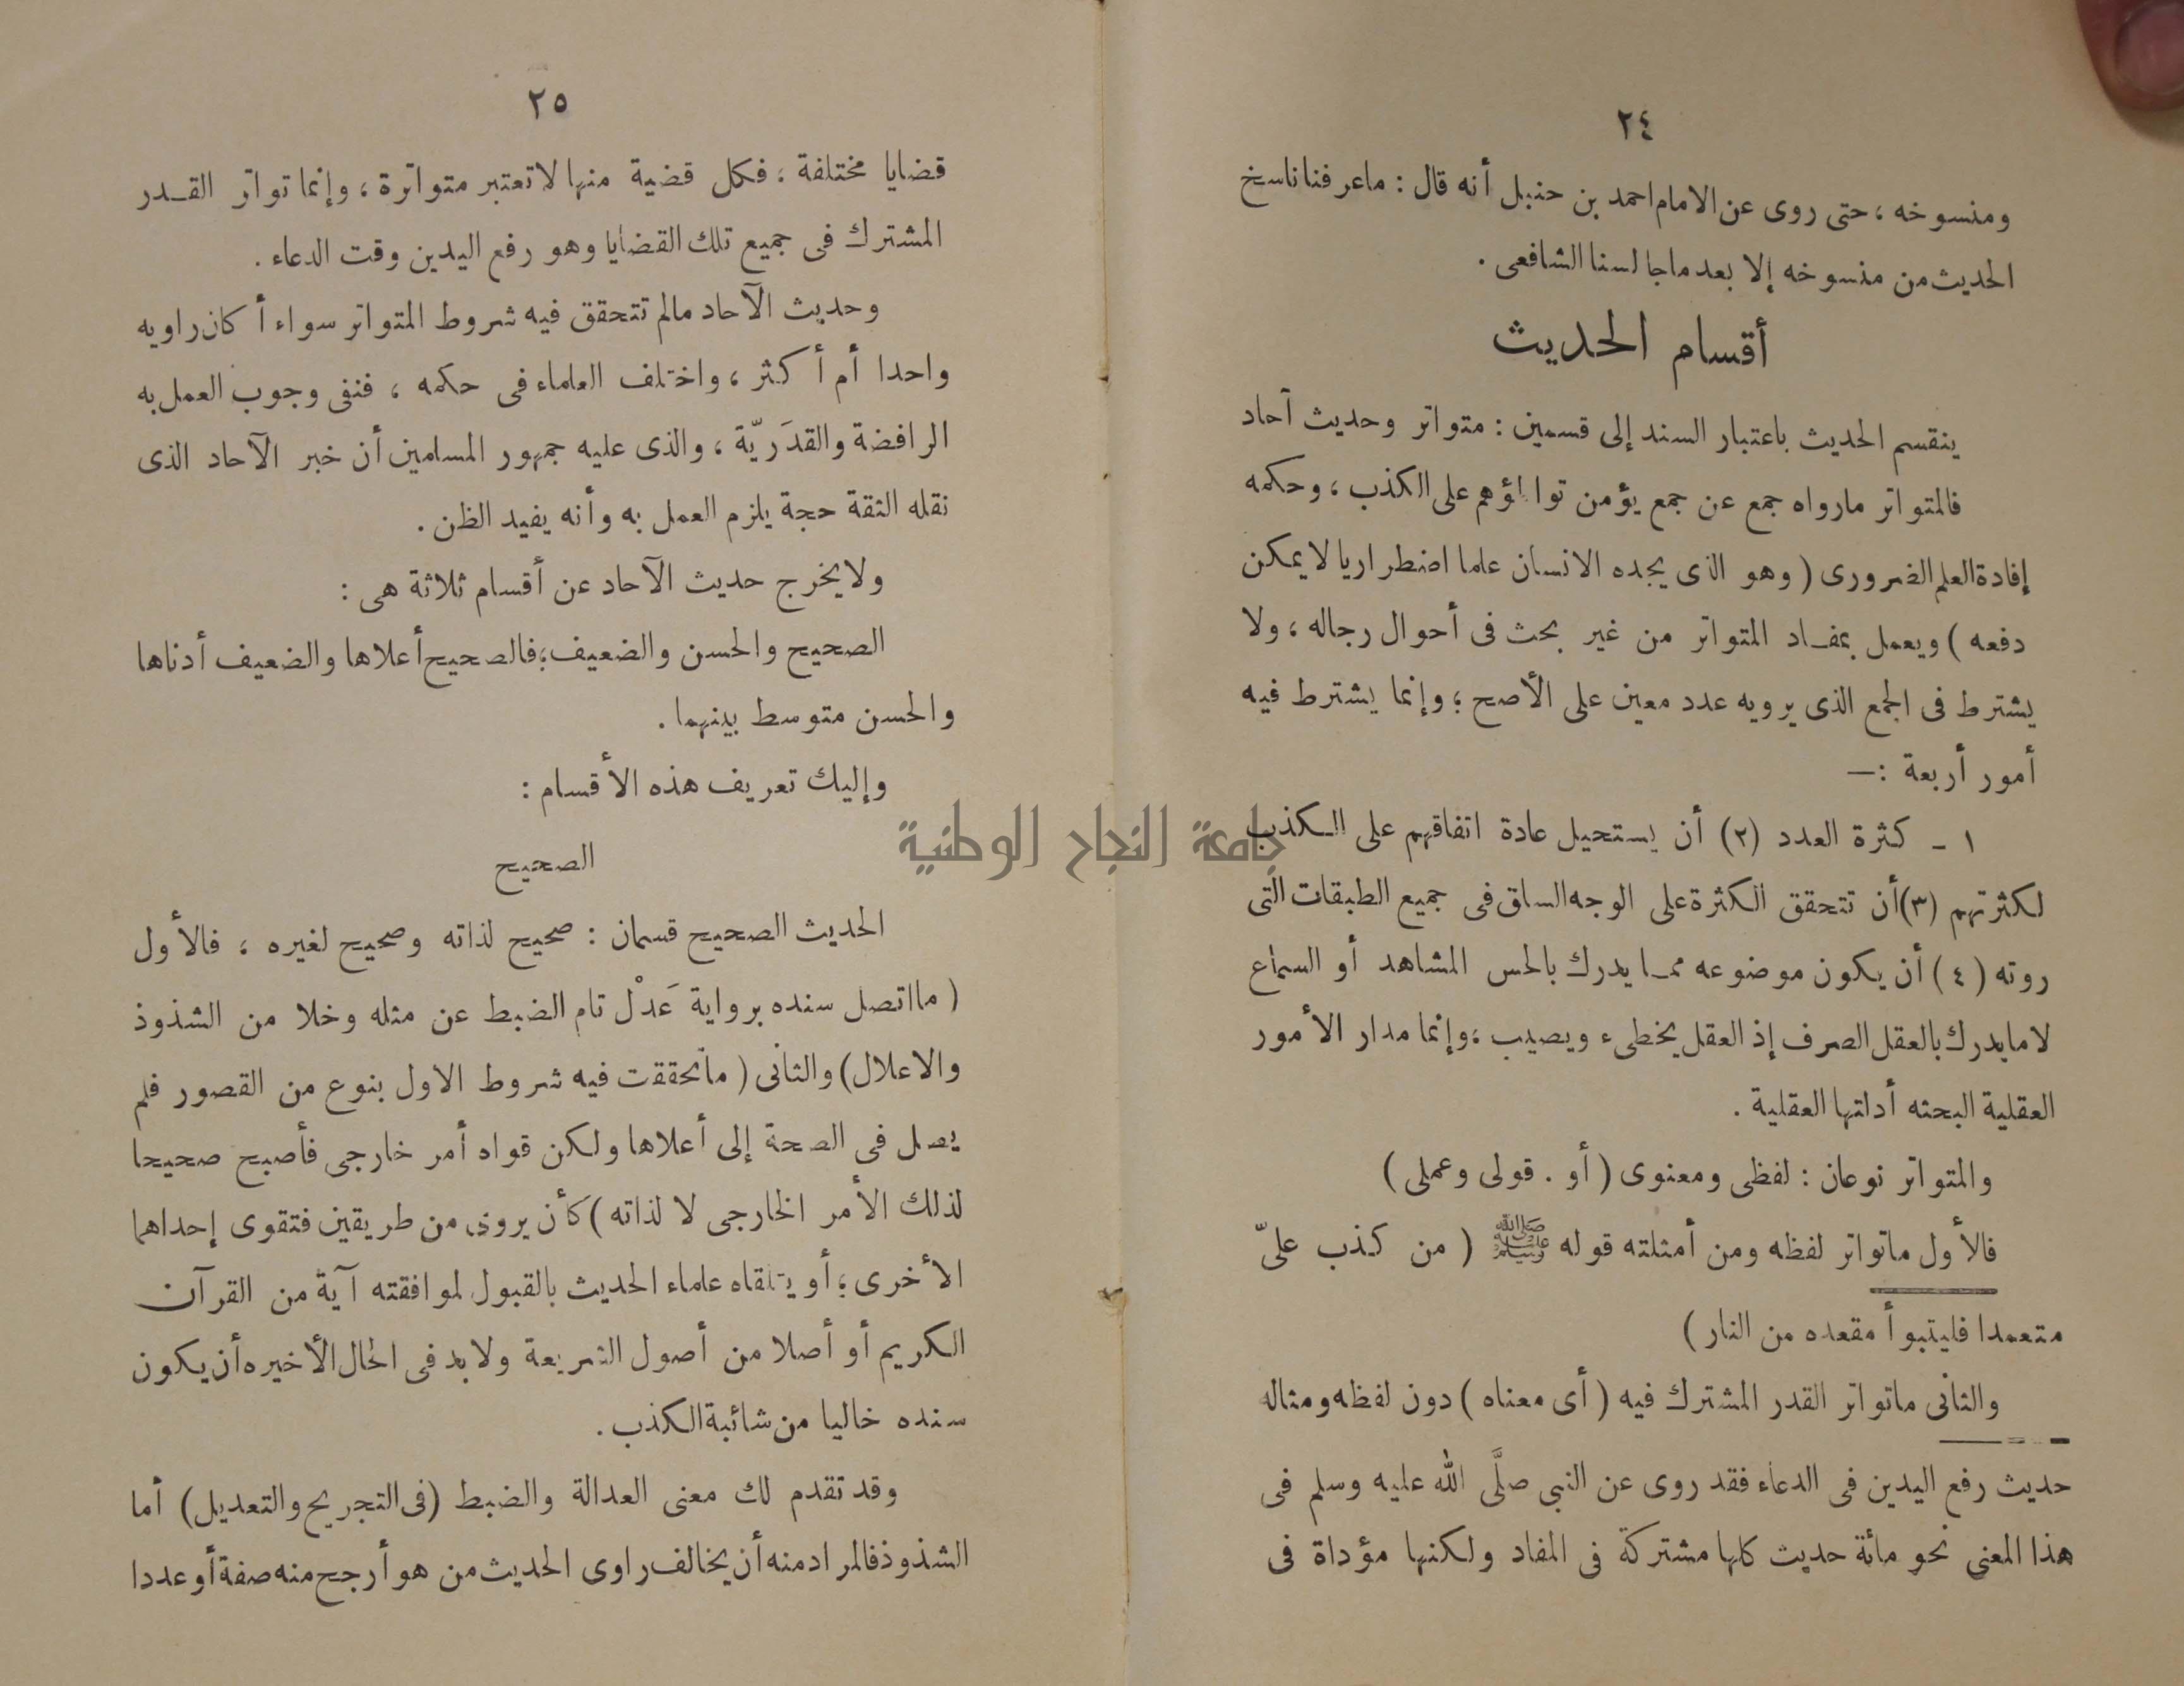 ٢٤
ومنسوخه ، حتى روى عن الامام احمد بن حنبل أنه قال : ماعرفنا ناسخ
الحديث من منسوخه إلا بعد ماجالسنا الشافعى .
أقسام الحديث
ينقسم الحديث باعتبار السند إلى قسمين : متواتر وحديث آحاد
فالمتواتر مارواه جمع عن جمع يؤمن تواطؤهم على الكذب ، وحكمه
إفادة العلم الضرورى ( وهو الذى يجده الانسان علما اضطراريا لا يمكن
دفعه ) ويعمل بمفـاد المتواتر من غير بحث فى أحوال رجاله ، ولا
يشترط فى الجمع الذى يرويه عدد معين على الأصح ؛ وإنما يشترط فيه
أمور أربعة :—
١ - كثرة العدد (٢) أن يستحيل عادة اتفاقهم على الكذب
لكثرتهم (٣) أن تتحقق الكثرة على الوجه الساق فى جميع الطبقات التى
روته ( ٤ ) أن يكون موضوعه ممـا يدرك بالحس المشاهد أو السماع
لا مايدرك بالعقل الصرف إذ العقل يخطىء ويصيب ، وإنما مدار الأمور
العقلية البحثه أدلتها العقلية .
والمتواتر نوعان : لفظى ومعنوى ( أو . قولى وعملى )
فالأول ماتواتر لفظه ومن أمثلته قوله ﷺ ( من كذب علىّ
متعمدا فليتبوأ مقعده من النار )
والثانى ماتواتر القدر المشترك فيه ( أى معناه ) دون لفظه ومثاله
حديث رفع اليدين فى الدعاء فقد روى عن النبي صلَّى الله عليه وسلم فى
هذا المعنى نحو مائة حديث كلها مشتركة فى المفاد ولكنها مؤداة فى
٢٥
قضايا مختلفة ؛ فكل قضية منها لا تعتبر متواترة ، وإنما تواتر القـدر
المشترك فى جميع تلك القضايا وهو رفع اليدين وقت الدعاء .
وحديث الآحاد مالم تتحقق فيه شروط المتواتر سواء أكان راويه
واحدا أم أكثر ، واختلف العلماء فى حكمه ، فنفى وجوب العمل به
الرافضة والقدَريّة ، والذى عليه جمهور المسلمين أن خبر الآحاد الذى
نقله الثقة حجة يلزم العمل به وأنه يفيد الظن .
ولا يخرج حديث الآحاد عن أقسام ثلاثة هى :
الصحيح والحسن والضعيف ؛ فالصحيح أعلاها والضعيف أدناها
والحسن متوسط بينهما .
وإليك تعريف هذه الأقسام :
الصحيح
الحديث الصحيح قسمان : صحيح لذاته وصحيح لغيره ؛ فالأول
( مااتصل سنده برواية عَدْل تام الضبط عن مثله وخلا من الشذوذ
والاعلال ) والثانى ( ماتحققت فيه شروط الاول بنوع من القصور فلم
يصل فى الصحة إلى أعلاها ولكن قواه أمر خارجى فأصبح صحيحا
لذلك الأمر الخارجى لا لذاته ) كأن يروى من طريقين فتقوى إحداهما
الأخرى ؛ أو يتلقاه علماء الحديث بالقبول لموافقته آية من القرآن
الكريم أو أصلا من أصول الشريعة ولا بد فى الحال الأخيره أن يكون
سنده خاليا من شائبة الكذب .
وقد تقدم لك معنى العدالة والضبط ( فى التجريح والتعديل ) أما
الشذوذ فالمراد منه أن يخالف راوى الحديث من هو أرجح منه صفة أو عددا
جامعة النجاح الوطنية